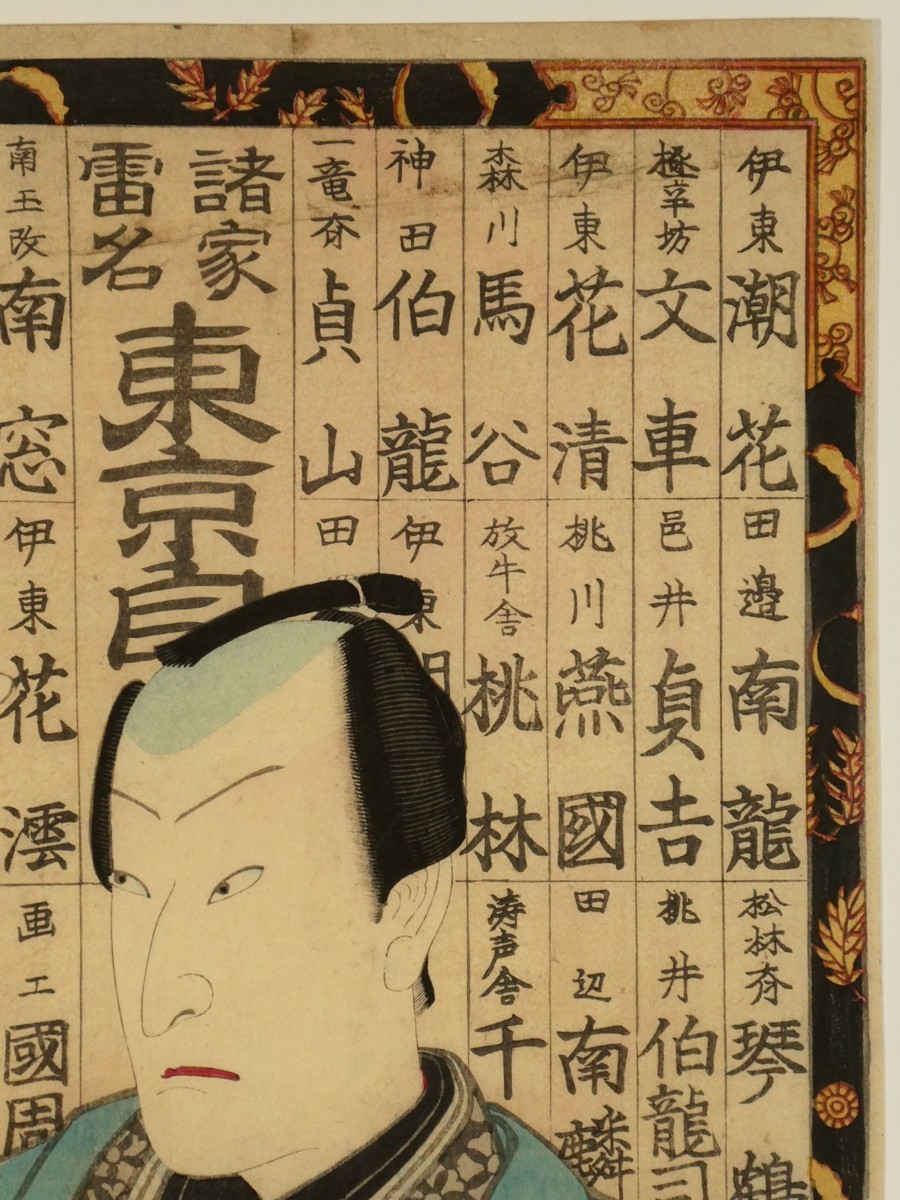 伊東潮花
極辛坊文車
伊東花清
森川馬谷
神田伯龍
一竜斎貞山
諸家
雷名
東京自
南玉改南窓
田邊南龍
邑井貞吉
桃川燕國
放牛舎桃林
伊東
田
伊東花雲
松林斎琴鶴
桃井伯龍司
田辺南麟
涛声舎千
画工國周